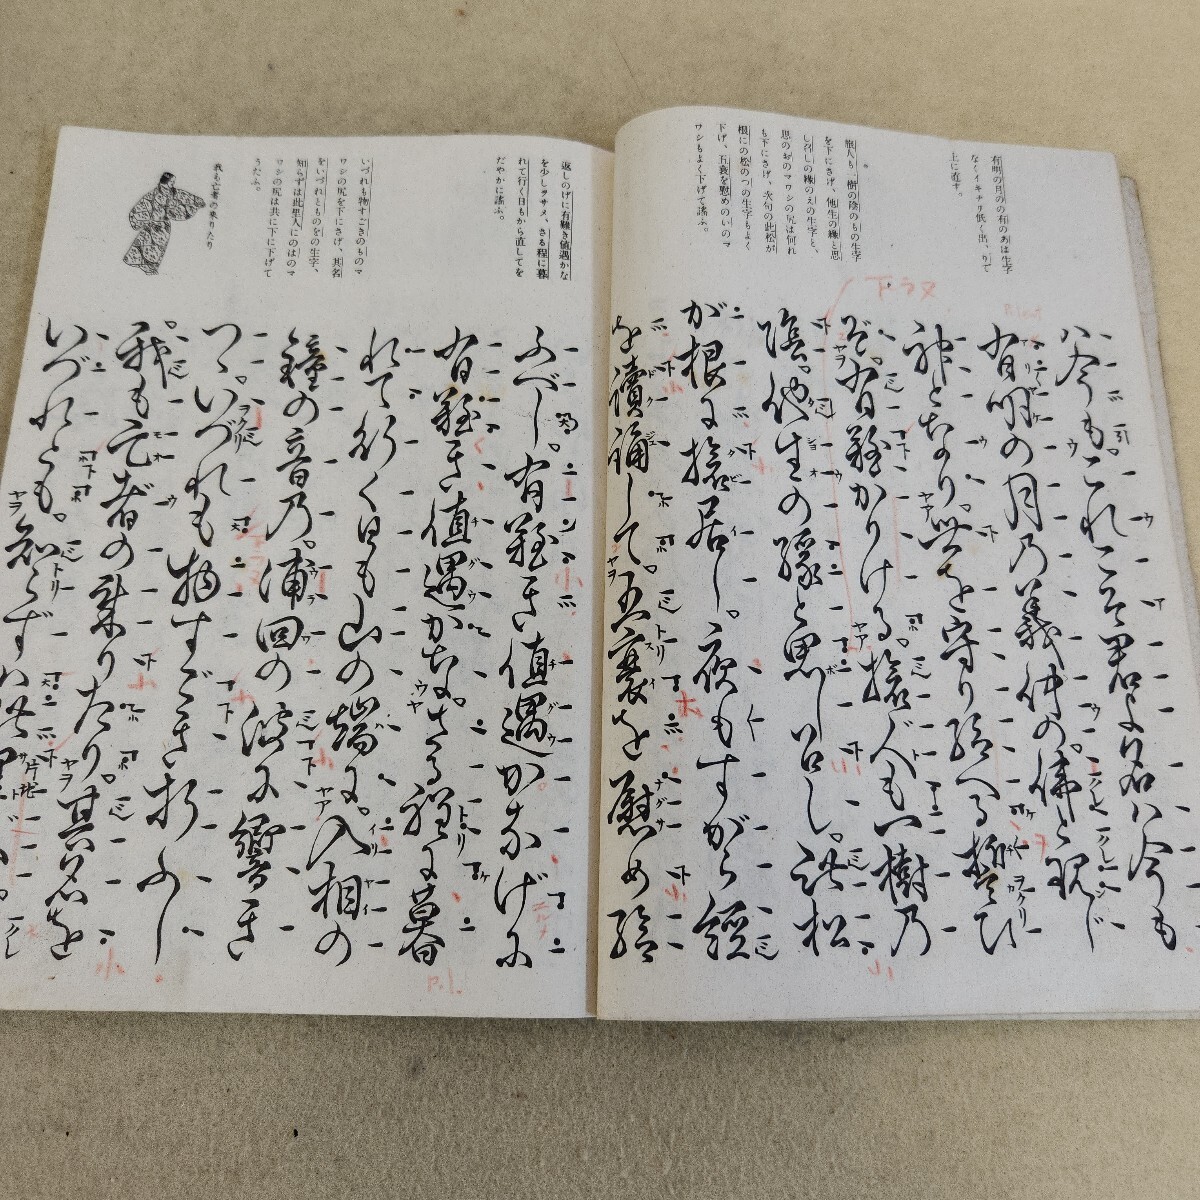 有明の月のの有のあは生字
なくイキナリ低く出、りて
上に直す。
旅人も一樹の陰のもの生字
を下にさげ、他生の縁と思
し召しの縁のえの生字と、
思のおのマワシの尻は何れ
も下にさげ、次句の此松が
根にの松のつの生字もよく
下げ、五衰を慰めのいのマ
ワシもよく下げて謠ふ。
ハ今も。これこそ君よ名ハ今も
有明の月乃義仲の。佛と現じ
神となり。世を守り給へる誓ひ
ぞ。有難かりける。旅人も一樹乃
陰。他生の縁と思し召し。此松
が根に旅居し。夜もすがら經
を讀誦して。五衰を慰め給
返しのげに有難き値遇かな
を少しヲサメ、さる程に暮
れて行く日もから直してを
だやかに謠ふ。
いづれも物すごきのものマ
ワシの尻を下にさげ、其名
をいづれとものをの生字、
知らずは此里人にのはのマ
ワシの尻は共に下に下げて
うたふ。
我も亡者の來りたり
ふべし。有難き値遇かなげに
有難き値遇かな。さる程に暮
れて行く日も山の端に。入相の
鐘の音乃。浦回の波に響き
つゝ。いづれも物すごき折ふし
我も亡者の來りたり。其名を
いづれとも。知らず